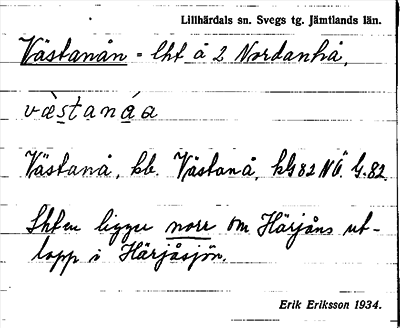 Lillhärdals sn. Svegs tg. Jämtlands län.
Västanån = lht å 2 Nordanhå,
væ̀stanáa
Västanå, kb. Västanå, kG82 NÖ. G.82
Lht en ligger norr om Härjåns ut-
lopp i Härjåsjön.
Erik Eriksson 1934.